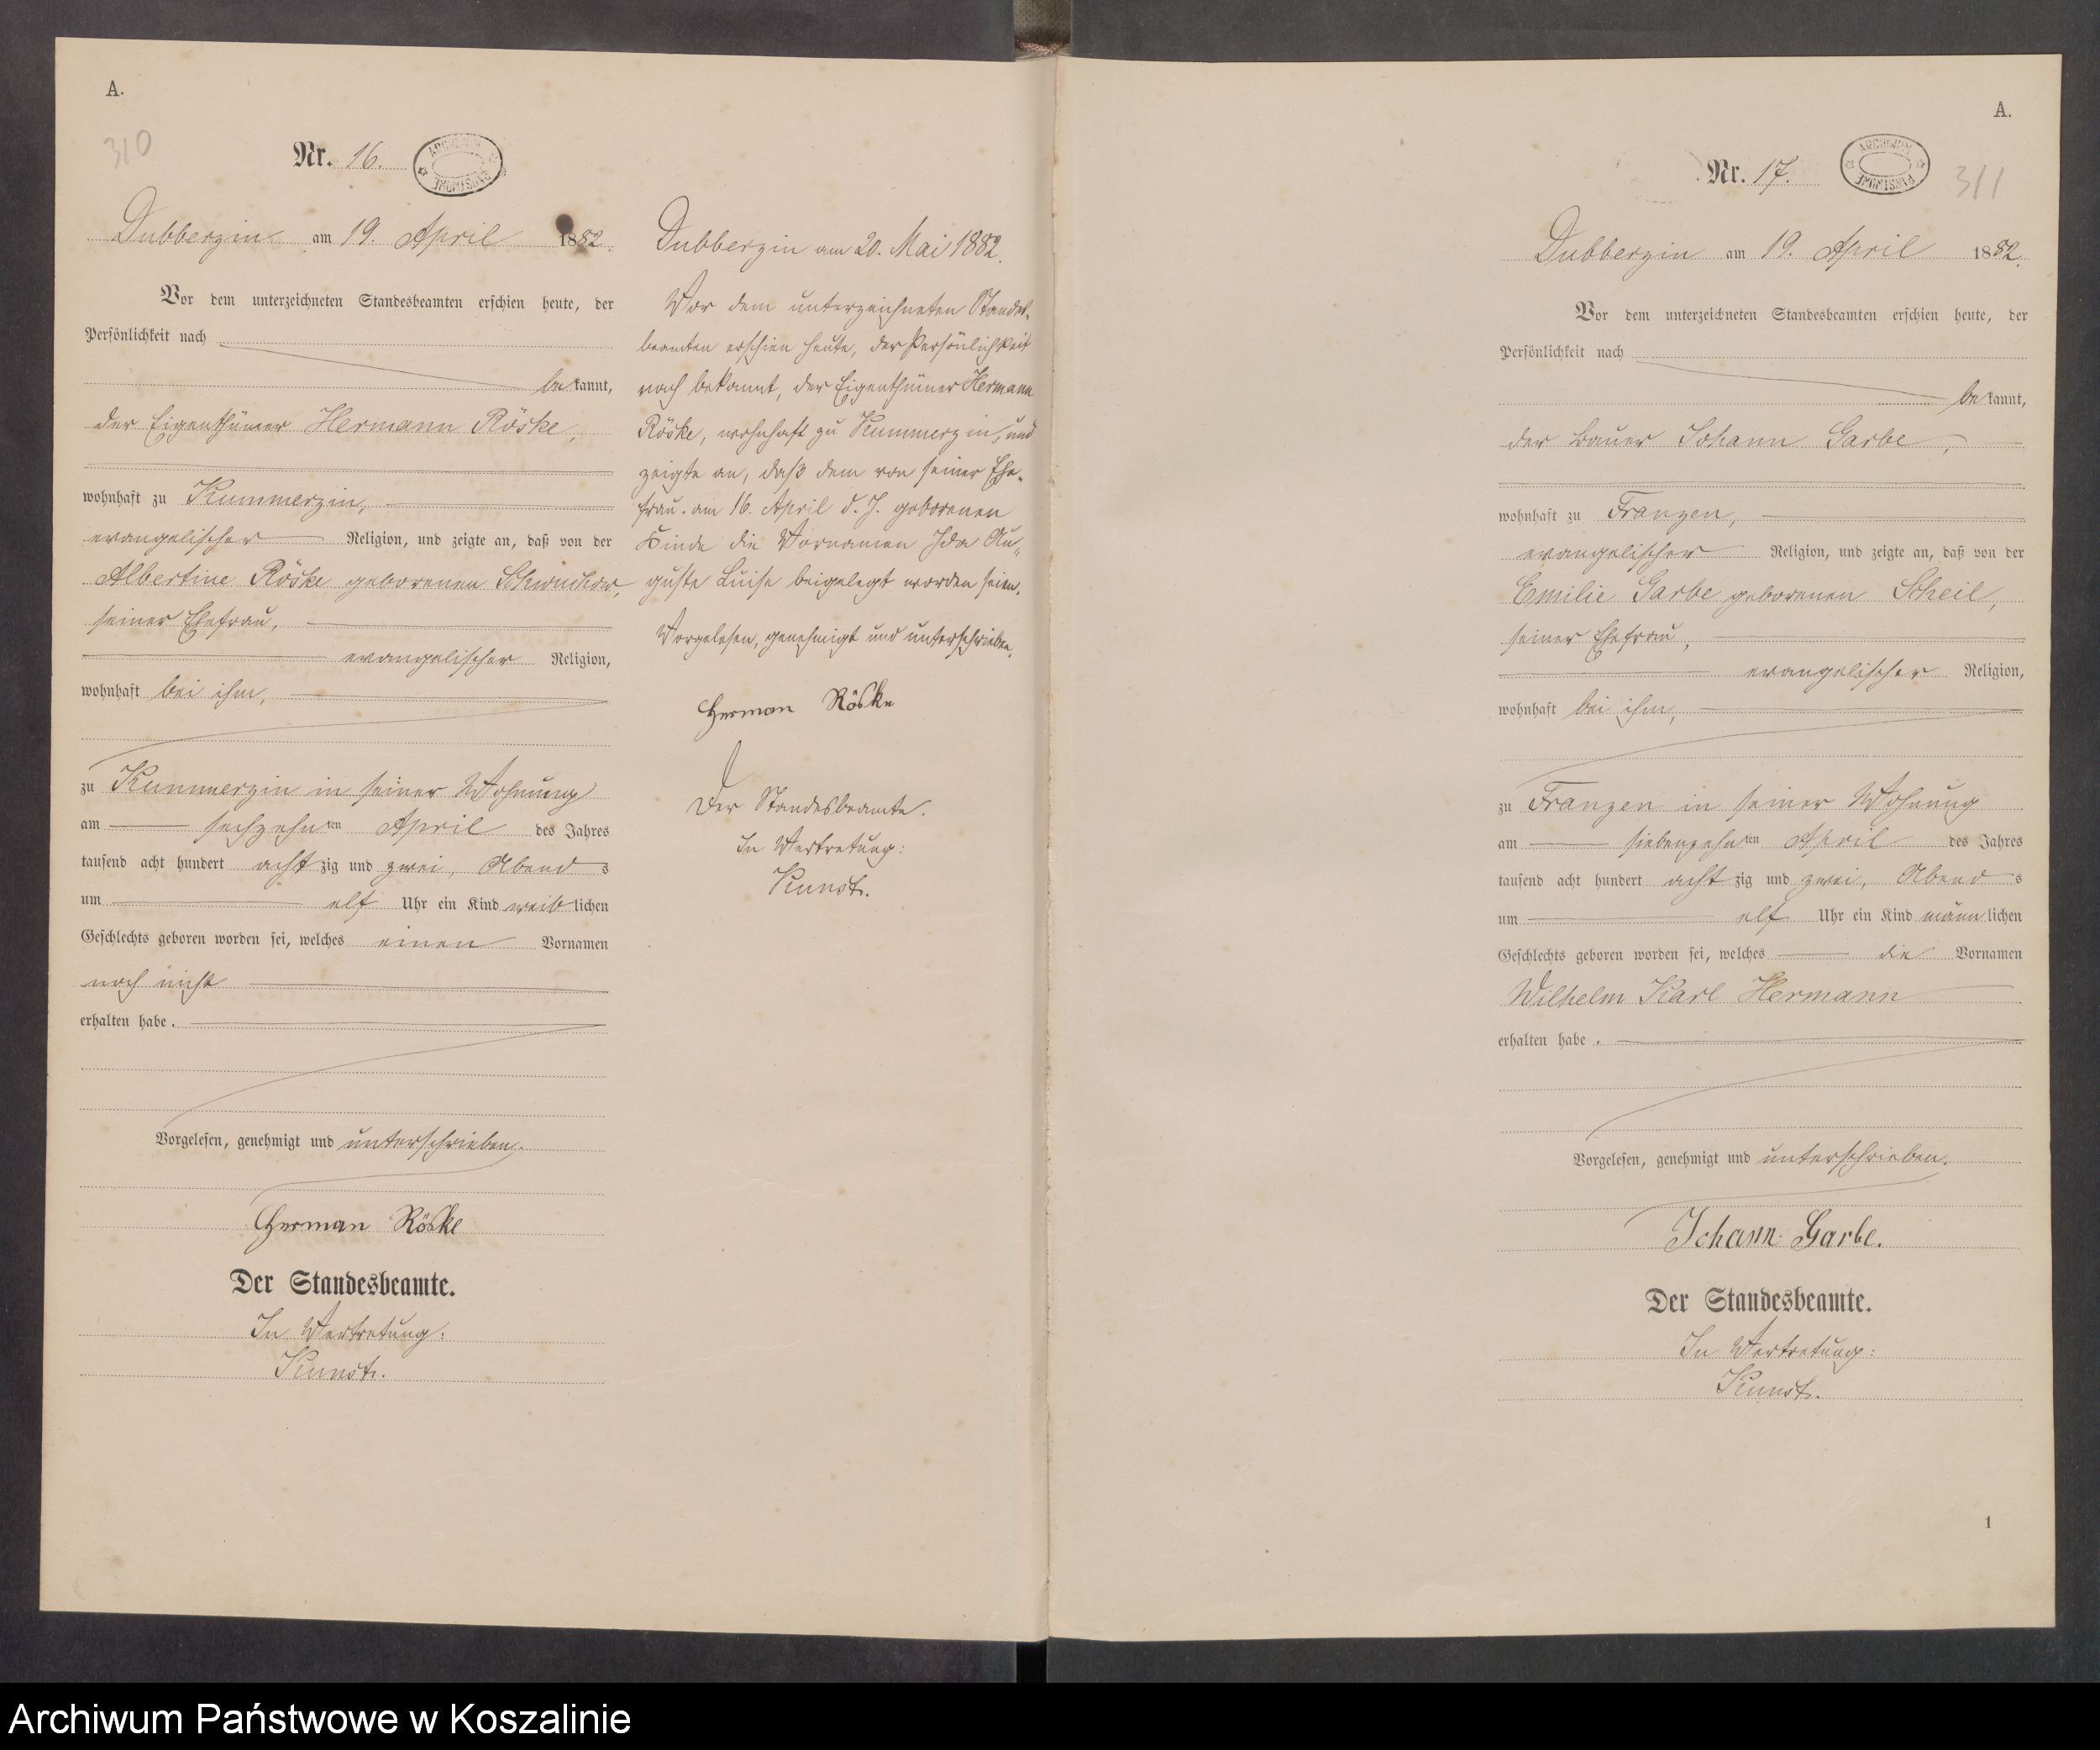 A.
310
Nr. 16.
ARCHIWUM PAŃSTWOWE
Dubberzin am 19. April 1882.
Vor dem unterzeichneten Standesbeamten erschien heute, der
Persönlichkeit nach
bekannt,
der Eigenthümer Hermann Röske,
wohnhaft zu Kummerzin,
evangelischer Religion, und zeigte an, daß von der
Albertine Röske geborenen
seiner Ehefrau,
evangelischer Religion,
wohnhaft bei ihm,
zu Kummerzin in seiner Wohnung
am sechzehnten April des Jahres
tausend acht hundert achtzig und zwei, Abends
um elf Uhr ein Kind weiblichen
Geschlechts geboren worden sei, welches einen Vornamen
noch nicht
erhalten habe.
Vorgelesen, genehmigt und unterschrieben.
Herman Röske
Der Standesbeamte.
In Vertretung:
Kunst.
Dubberzin am 20. Mai 1882.
Vor dem unterzeichneten Standes-
beamten erschien heute, der Persönlichkeit
nach bekannt, der Eigenthümer Hermann
Röske, wohnhaft zu Kummerzin, und
zeigte an, daß dem von seiner Ehe-
frau am 16. April d. J. geborenen
Kinde die Vornamen Ida Au-
guste Luise beigelegt worden seien.
Vorgelesen, genehmigt und unterschrieben.
Herman Röske
Der Standesbeamte.
In Vertretung:
Kunst.
A.
Nr. 17.
ARCHIWUM PAŃSTWOWE
311
Dubberzin am 19. April 1882.
Vor dem unterzeichneten Standesbeamten erschien heute, der
Persönlichkeit nach
bekannt,
der Bauer Johann Garbe,
wohnhaft zu Franzen,
evangelischer Religion, und zeigte an, daß von der
Emilie Garbe geborenen Scheil,
seiner Ehefrau,
evangelischer Religion,
wohnhaft bei ihm,
zu Franzen in seiner Wohnung
am siebenzehnten April des Jahres
tausend acht hundert achtzig und zwei, Abends
um elf Uhr ein Kind männlichen
Geschlechts geboren worden sei, welches die Vornamen
Wilhelm Karl Hermann
erhalten habe.
Vorgelesen, genehmigt und unterschrieben.
Johann Garbe.
Der Standesbeamte.
In Vertretung:
Kunst.
1
Archiwum Państwowe w Koszalinie